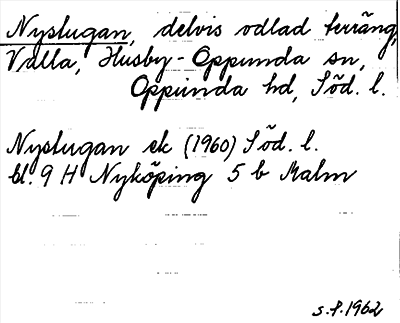 Nyslugan, delvis odlad terräng,
Valla, Husby-Oppunda sn,
Oppunda hd, Söd. l.
Nyslugan ek (1960) Söd. l.
bl. 9 H Nyköping 5 b Malm
s.f. 1962